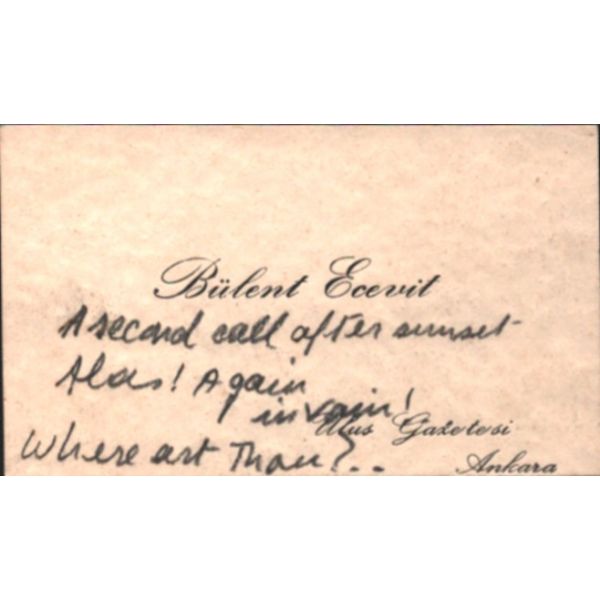 Bülent Ecevit
A second call after sunset
Alas! Again
in vain!
Ulus Gazetesi
Where art Thou?..
Ankara